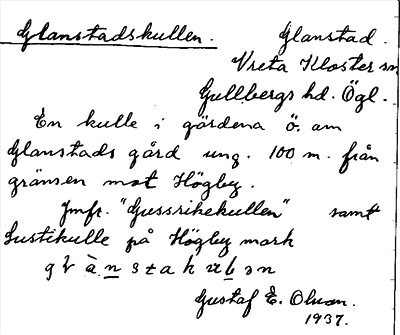 Glanstadskullen. Glanstad.
Vreta Kloster sn
Gullbergs hd. Ögl.
En kulle i gärdena ö. om
Glanstads gård ung. 100 m. från
gränsen mot Högby.
Jmfr. "Gussrikekullen" samt
Lustikulle på Högby mark
Gustaf E. Olsson.
1937.